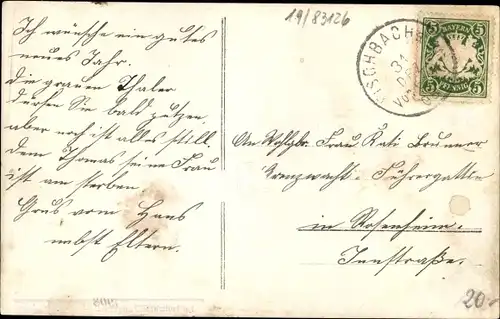 19/83126
Ich wünsche ein gutes
neues Jahr.
die grauen Thaler
dürfen Sie bald putzen,
aber noch ist alles still.
dem Thomas seine Frau
ist am sterben.
Grus vom Hans
nebst Eltern.
FISCHBACH
31
VOR
BAYERN
5 5
5 PFENNIG 5
An Wohlgbr. Frau Kati Brunner
Grenzwacht-Führergattin
in Rosenheim.
Innstraße.
20.-